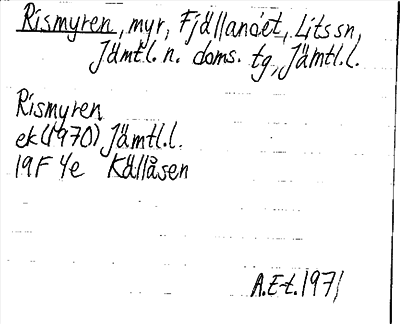 Rismyren, myr, Fjällandet, Lits sn,
Jämtl. n. doms. tg, Jämtl. l.
Rismyren
ek (1970) Jämtl. l.
19F 4e Källåsen
A.E-t. 1971